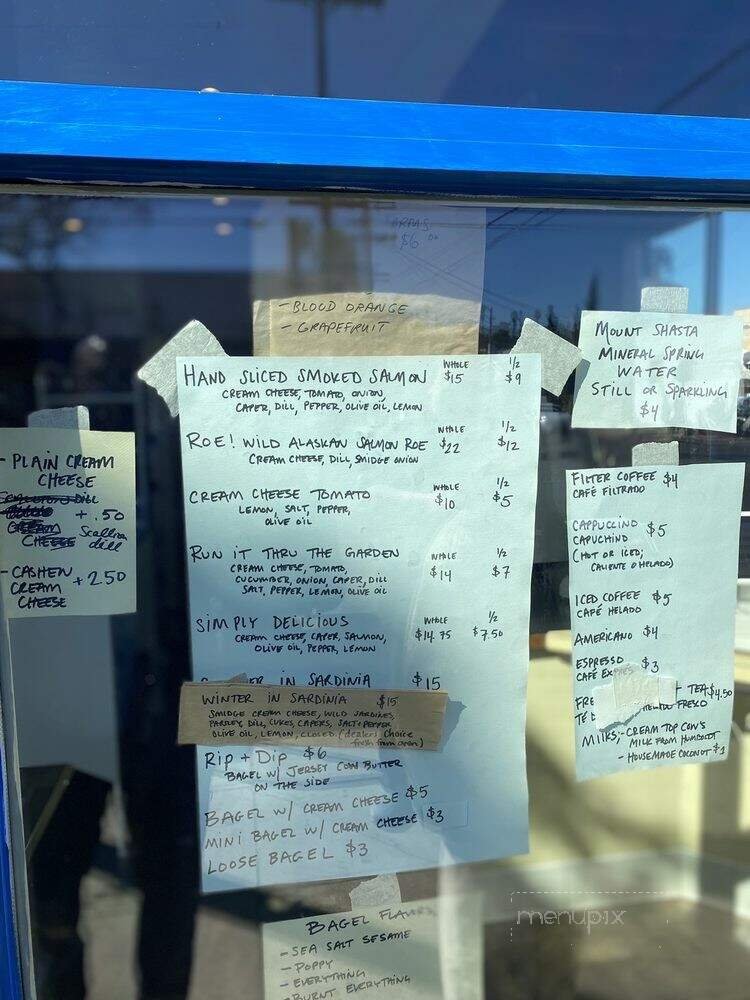 $6
- BLOOD ORANGE
- GRAPEFRUIT
MOUNT SHASTA
MINERAL SPRING
WATER
STILL OR SPARKLING
$4
- PLAIN CREAM
CHEESE
+ .50
CREAM
CHEESE
Scallion
dill
- CASHEW
CREAM
CHEESE
+ 2.50
HAND SLICED SMOKED SALMON WHOLE $15 1/2 $9
CREAM CHEESE, TOMATO, ONION,
CAPER, DILL, PEPPER, OLIVE OIL, LEMON
ROE! WILD ALASKAN SALMON ROE WHOLE $22 1/2 $12
CREAM CHEESE, DILL, SMIDGE ONION
CREAM CHEESE TOMATO WHOLE $10 1/2 $5
LEMON, SALT, PEPPER,
OLIVE OIL
RUN IT THRU THE GARDEN WHOLE $14 1/2 $7
CREAM CHEESE, TOMATO,
CUCUMBER, ONION, CAPER, DILL
SALT, PEPPER, LEMON, OLIVE OIL
SIMPLY DELICIOUS WHOLE $14.75 1/2 $7.50
CREAM CHEESE, CAPER, SALMON,
OLIVE OIL, PEPPER, LEMON
IN SARDINIA $15
WINTER IN SARDINIA $15
SMIDGE CREAM CHEESE, WILD SARDINES,
PARSLEY, DILL, CUKES, CAPERS, SALT + PEPPER
OLIVE OIL, LEMON, CLOSED (dealers choice
fresh from oven)
RIP + DIP $6
BAGEL W/ JERSEY COW BUTTER
ON THE SIDE
BAGEL W/ CREAM CHEESE $5
MINI BAGEL W/ CREAM CHEESE $3
LOOSE BAGEL $3
FILTER COFFEE $4
CAFÉ FILTRADO
CAPPUCCINO $5
CAPUCHINO
(HOT OR ICED;
CALIENTE O HELADO)
ICED COFFEE $5
CAFÉ HELADO
AMERICANO $4
ESPRESSO $3
CAFÉ
TEA $4.50
FRESCO
MILKS; - CREAM TOP COWS
MILK FROM HUMBOLDT
- HOUSEMADE COCONUT $1
BAGEL FLAVORS
- SEA SALT SESAME
- POPPY
- EVERYTHING
- BURNT EVERYTHING
menupix